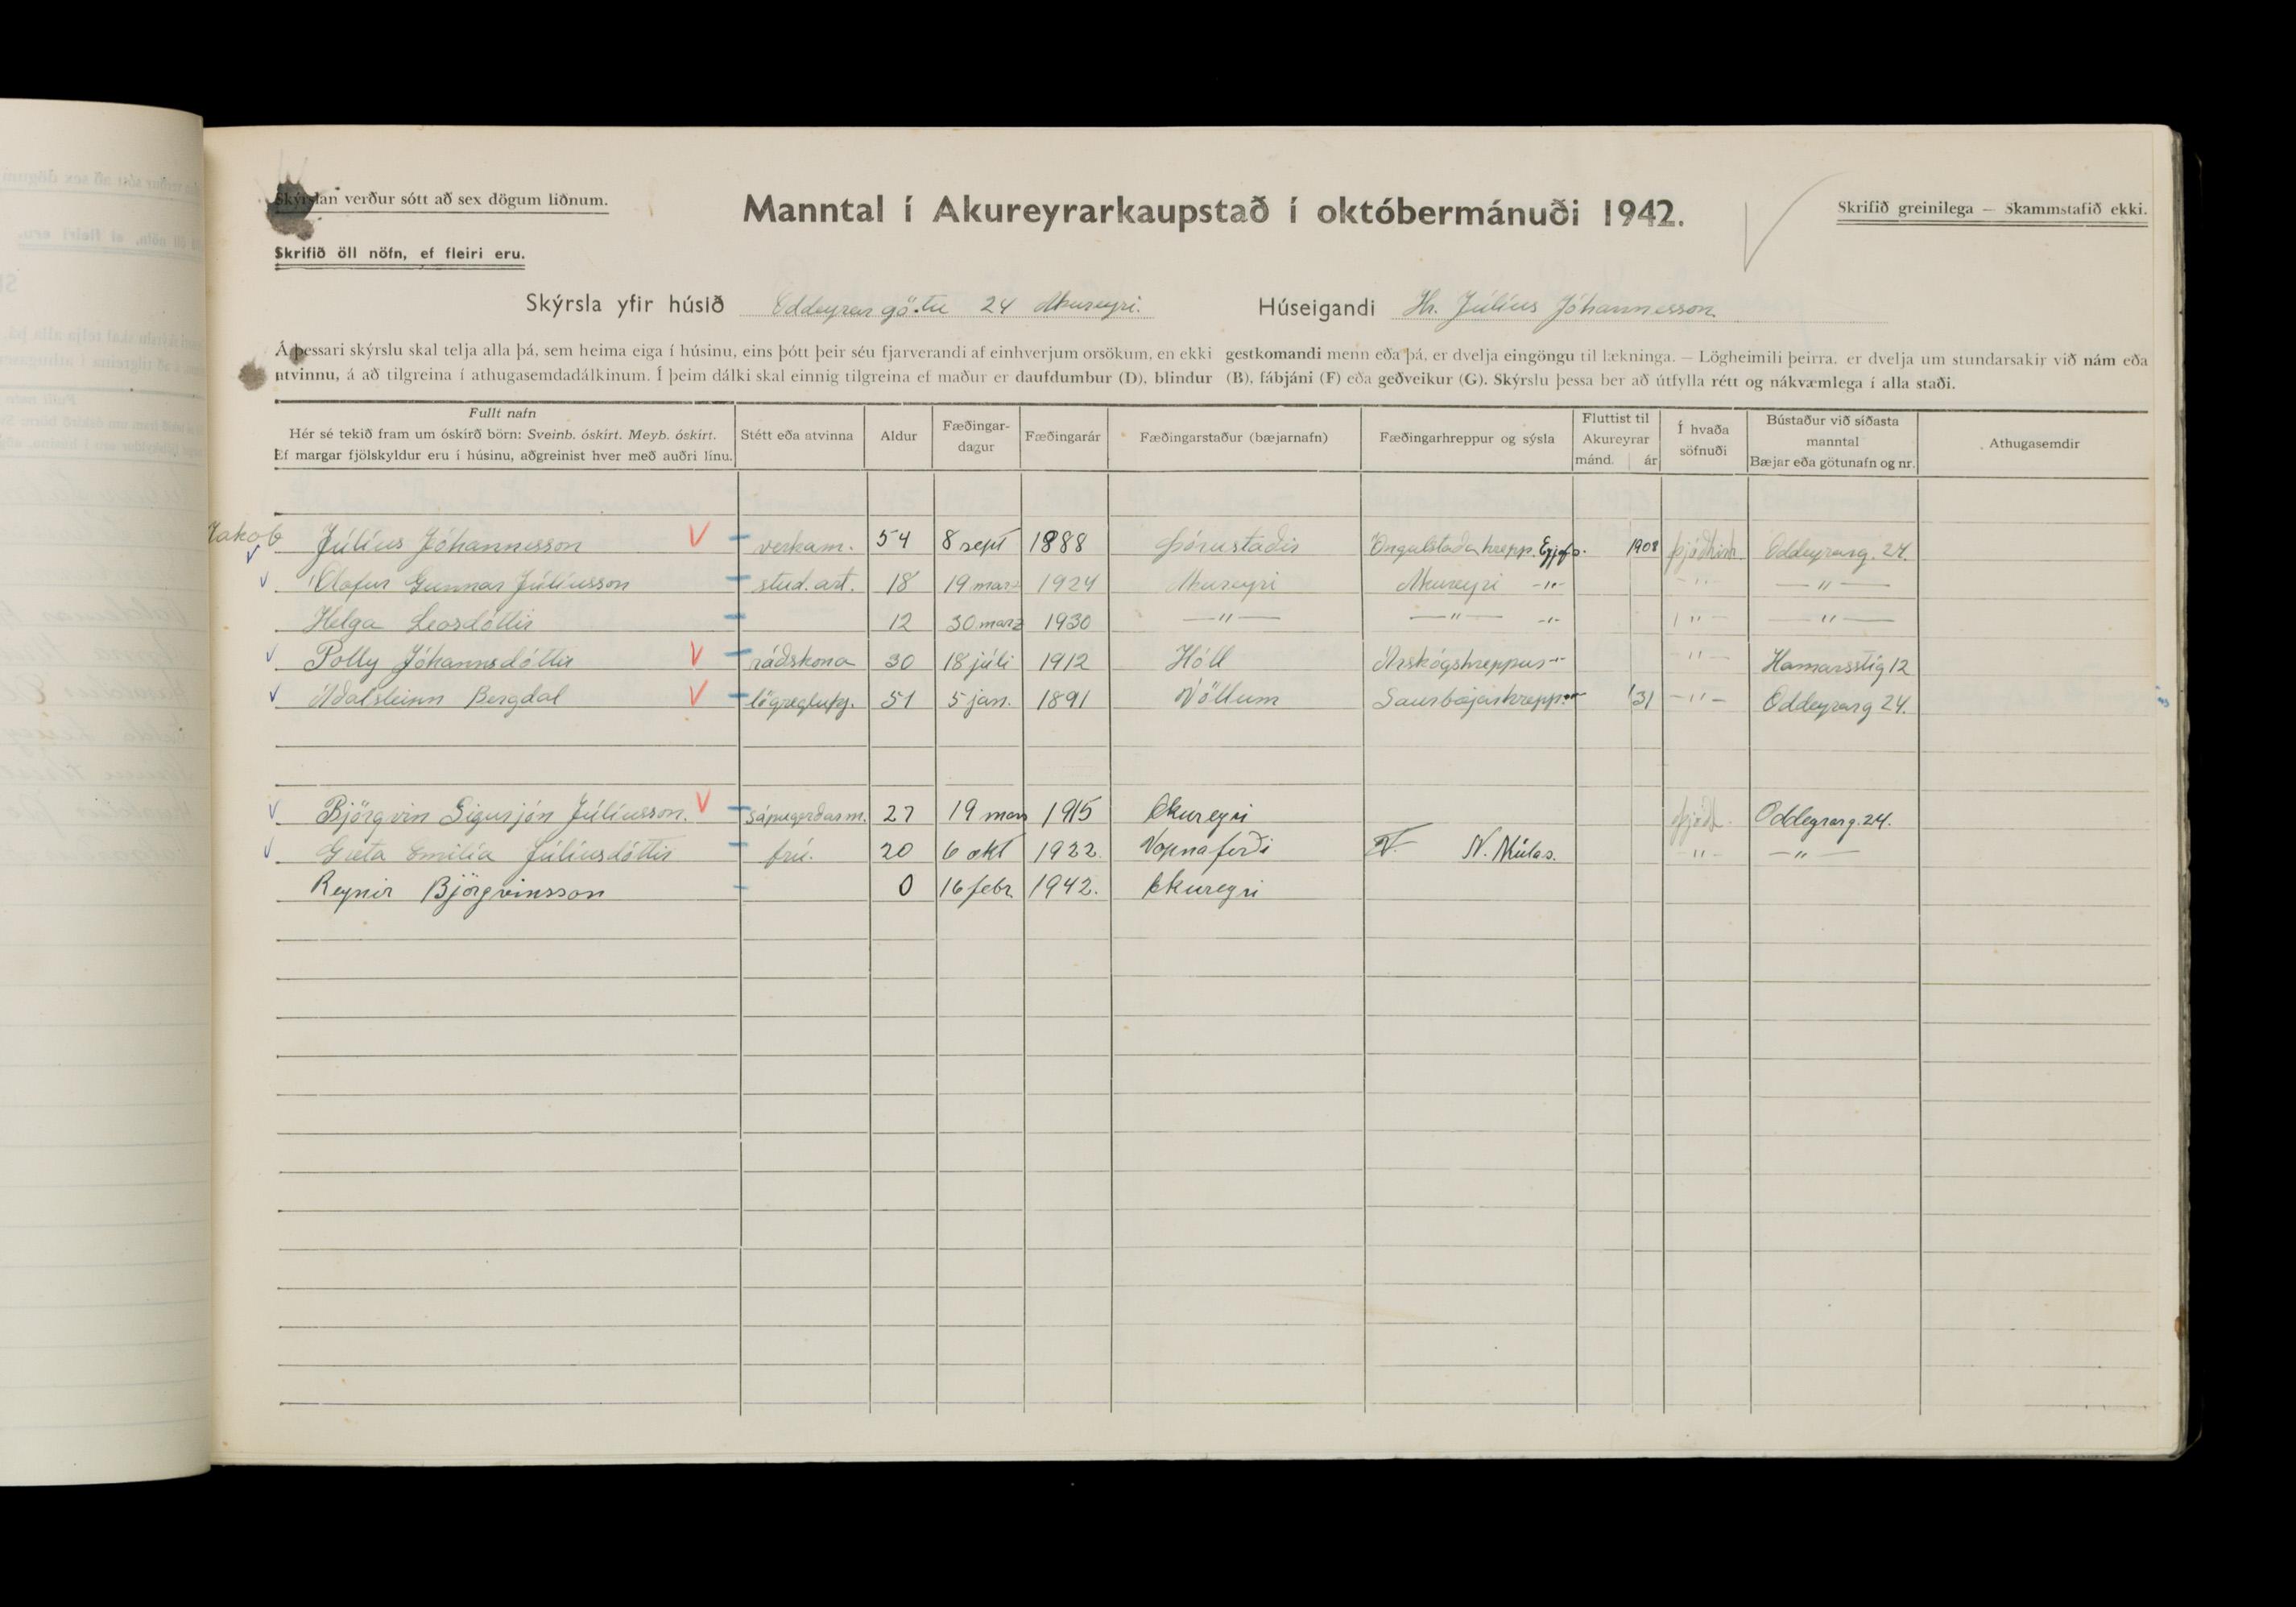 Skýrslan verður sótt að sex dögum liðnum.
Manntal í Akureyrarkaupstað í októbermánuði 1942.
Skrifið greinilega — Skammstafið ekki.
Skrifið öll nöfn, ef fleiri eru.
Skýrsla yfir húsið Oddeyrargötu 24 Akureyri. Húseigandi Hr. Júlíus Jóhannesson.
Á þessari skýrslu skal telja alla þá, sem heima eiga í húsinu, eins þótt þeir séu fjarverandi af einhverjum orsökum, en ekki gestkomandi menn eða þá, er dvelja eingöngu til lækninga. — Lögheimili þeirra, er dvelja um stundarsakir við nám eða
atvinnu, á að tilgreina í athugasemdadálkinum. Í þeim dálki skal einnig tilgreina ef maður er daufdumbur (D), blindur (B), fábjáni (F) eða geðveikur (G). Skýrslu þessa ber að útfylla rétt og nákvæmlega í alla staði.
Fullt nafn
Hér sé tekið fram um óskírð börn: Sveinb. óskírt. Meyb. óskírt.
Ef margar fjölskyldur eru í húsinu, aðgreinist hver með auðri línu.
Stétt eða atvinna
Aldur
Fæðingar-
dagur
Fæðingarár
Fæðingarstaður (bæjarnafn)
Fæðingarhreppur og sýsla
Fluttist til
Akureyrar
mánd. ár
Í hvaða
söfnuði
Bústaður við síðasta
manntal
Bæjar eða götunafn og nr.
Athugasemdir
Jakob Júlíus Jóhannesson V verkam. 54 8 sept 1888 Þórustaðir Öngulstaðahrepp. Eyjafs. 1908 þjóðkirk. Oddeyrarg. 24.
Ólafur Gunnar Júlíusson stud. art. 18 19 marz 1924 Akureyri Akureyri -"- -"- -"-
Helga Leosdóttir 12 30 marz 1930 -"- -"- -"- -"- -"-
Polly Jóhannsdóttir V ráðskona 30 18 júli 1912 Hóll Árskógshreppur -"- -"- Hamarsstíg 12
Aðalsteinn Bergdal V lögregluþj. 51 5 jan. 1891 Völlum Saurbæjarhrepp. -"- '31 -"- Oddeyrarg 24.
Björgvin Sigurjón Júlíusson. V sápugerðarm. 27 19 mars 1915 Akureyri þjóðk. Oddeyrarg. 24.
Greta Emilía Júlíusdóttir frú. 20 6 okt 1922. Vopnafirði N. Múlas. -"- -"-
Reynir Björgvinsson 0 16 febr. 1942. Akureyri